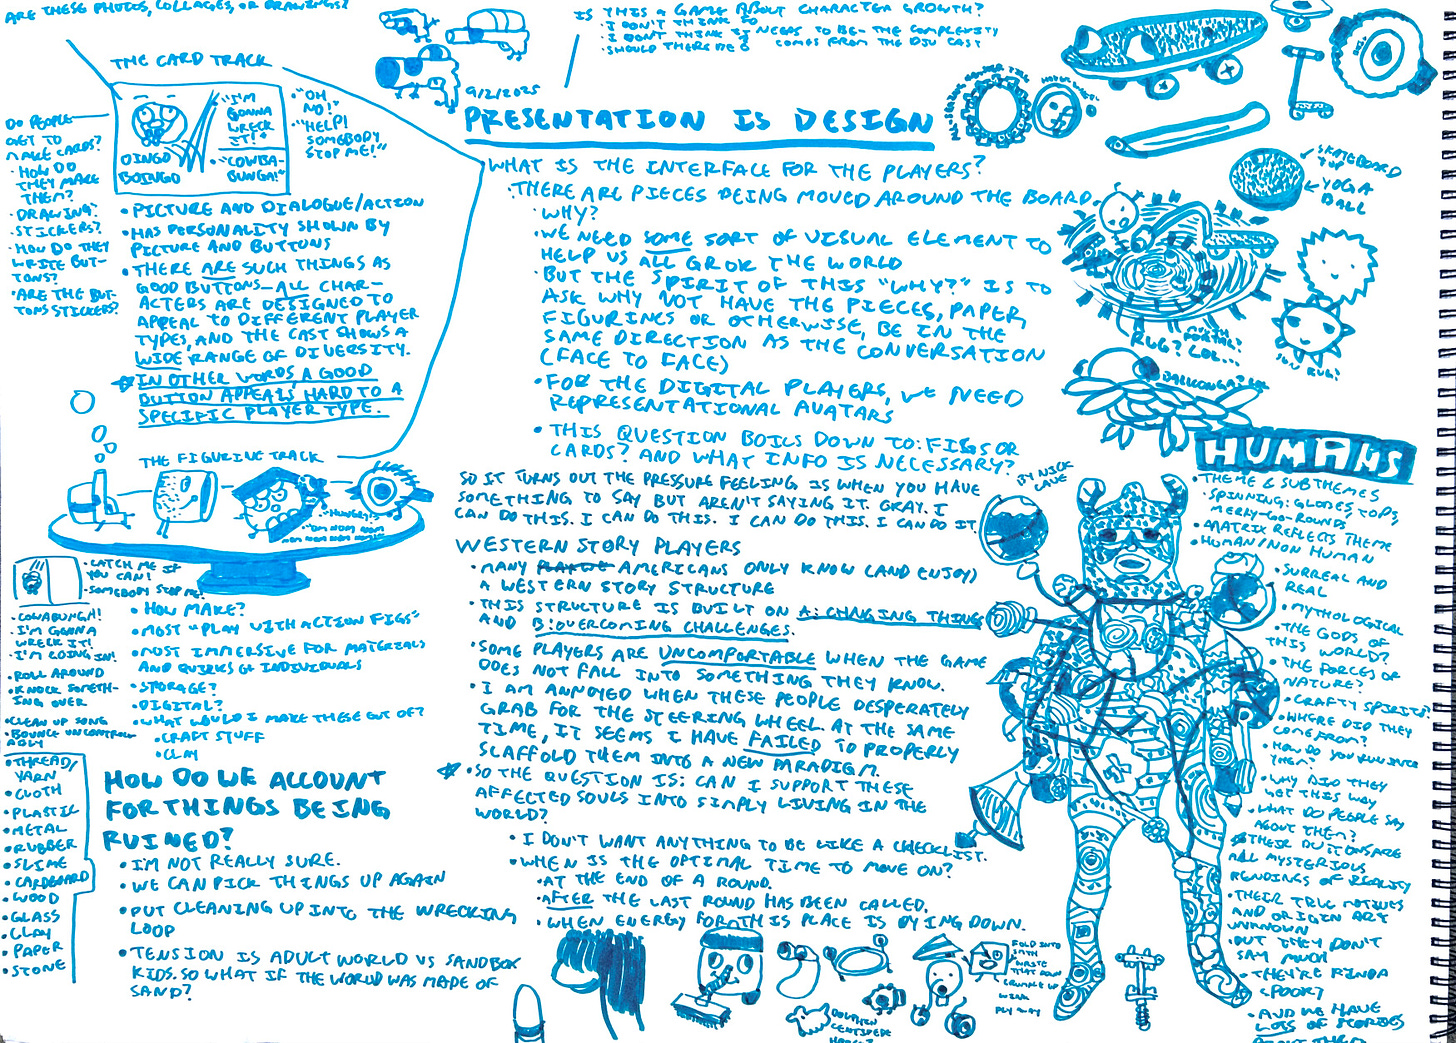 ARE THESE PHOTOS, COLLAGES, OR DRAWINGS?
THE CARD TRACK
DO PEOPLE
GET TO
MAKE CARDS?
• HOW DO
THEY MAKE
THEM?
• DRAWING?
• STICKERS?
• HOW DO THEY
WRITE BUT-
TONS?
• ARE THE BUT-
TONS STICKERS?
OINGO
BOINGO
"I'M
GONNA
WRECK
IT!"
"COWBA-
BUNGA!"
• "OH
NO!"
• "HELP!
SOMEBODY
STOP ME!"
• PICTURE AND DIALOGUE/ACTION
• HAS PERSONALITY SHOWN BY
PICTURE AND BUTTONS
• THERE ARE SUCH THINGS AS
GOOD BUTTONS—ALL CHAR-
ACTERS ARE DESIGNED TO
APPEAL TO DIFFERENT PLAYER
TYPES, AND THE CAST SHOWS A
WIDE RANGE OF DIVERSITY.
IN OTHER WORDS, A GOOD
BUTTON APPEALS HARD TO A
SPECIFIC PLAYER TYPE.
THE FIGURINE TRACK
"HUNGRY!"
"OM NOM NOM
NOM NOM NOM NOM"
• CATCH ME IF
YOU CAN!
• SOMEBODY STOP ME!
• COWABUNGA!
• I'M GONNA
WRECK IT!
• I'M GOING IN!
• ROLL AROUND
• KNOCK SOMETH-
ING OVER
• CLEAN UP SONG
• BOUNCE UNCONTROLL-
ABLY
• HOW MAKE?
• MOST "PLAY WITH ACTION FIGS"
• MOST IMMERSIVE FOR MATERIALS
AND QUIRKS OF INDIVIDUALS
• STORAGE?
• DIGITAL?
• WHAT WOULD I MAKE THESE OUT OF?
• CRAFT STUFF
• CLAY
• THREAD/
YARN
• CLOTH
• PLASTIC
• METAL
• RUBBER
• SLIME
• CARDBOARD
• WOOD
• GLASS
• CLAY
• PAPER
• STONE
HOW DO WE ACCOUNT
FOR THINGS BEING
RUINED?
• I'M NOT REALLY SURE.
• WE CAN PICK THINGS UP AGAIN
• PUT CLEANING UP INTO THE WRECKING
LOOP
• TENSION IS ADULT WORLD VS SANDBOX
KIDS. SO WHAT IF THE WORLD WAS MADE OF
SAND?
IS THIS A GAME ABOUT CHARACTER GROWTH?
• I DON'T THINK SO
• I DON'T THINK IT NEEDS TO BE—THE COMPLEXITY
• SHOULD THERE BE? COMES FROM THE CAST
9/2/2025
PRESENTATION IS DESIGN
WHAT IS THE INTERFACE FOR THE PLAYERS?
• THERE ARE PIECES BEING MOVED AROUND THE BOARD.
• WHY?
• WE NEED SOME SORT OF VISUAL ELEMENT TO
HELP US ALL GROK THE WORLD
• BUT THE SPIRIT OF THIS "WHY?" IS TO
ASK WHY NOT HAVE THE PIECES, PAPER
FIGURINES OR OTHERWISE, BE IN THE
SAME DIRECTION AS THE CONVERSATION
(FACE TO FACE)
• FOR THE DIGITAL PLAYERS, WE NEED
REPRESENTATIONAL AVATARS
• THIS QUESTION BOILS DOWN TO: FIGS OR
CARDS? AND WHAT INFO IS NECESSARY?
SO IT TURNS OUT THE PRESSURE FEELING IS WHEN YOU HAVE
SOMETHING TO SAY BUT AREN'T SAYING IT. GRAY. I
CAN DO THIS. I CAN DO THIS. I CAN DO THIS. I CAN DO IT.
WESTERN STORY PLAYERS
• MANY AMERICANS ONLY KNOW (AND ENJOY)
A WESTERN STORY STRUCTURE
• THIS STRUCTURE IS BUILT ON A: CHANGING THINGS
AND B: OVERCOMING CHALLENGES.
• SOME PLAYERS ARE UNCOMFORTABLE WHEN THE GAME
DOES NOT FALL INTO SOMETHING THEY KNOW.
• I AM ANNOYED WHEN THESE PEOPLE DESPERATELY
GRAB FOR THE STEERING WHEEL. AT THE SAME
TIME, IT SEEMS I HAVE FAILED TO PROPERLY
SCAFFOLD THEM INTO A NEW PARADIGM.
• SO THE QUESTION IS: CAN I SUPPORT THESE
AFFECTED SOULS INTO SIMPLY LIVING IN THE
WORLD?
• I DON'T WANT ANYTHING TO BE LIKE A CHECKLIST.
• WHEN IS THE OPTIMAL TIME TO MOVE ON?
• AT THE END OF A ROUND.
• AFTER THE LAST ROUND HAS BEEN CALLED.
• WHEN ENERGY FOR THIS PLACE IS DYING DOWN.
DOLPHIN
CENTIPEDE
FOLD INTO
WASTE
THAT
CRUMPLE UP
SKATEBOARD
YOGA
BALL
RUG? LOL...
SUN RUG?
BY NICK
CAVE
HUMANS
• THEME & SUBTHEMES
• SPINNING: GLOBES, TOPS,
MERRY-GO-ROUNDS
• MATRIX REFLECTS THEME
• HUMAN/NON HUMAN
• SURREAL AND
REAL
• MYTHOLOGICAL
• THE GODS OF
THIS WORLD?
• THE FORCES OF
NATURE?
• CRAFTY SPIRITS?
• WHERE DID THEY
COME FROM?
• HOW DO YOU RUN INTO
THEM?
• WHY DID THEY
GET THIS WAY
• WHAT DO PEOPLE SAY
ABOUT THEM?
THEIR BUTTONS ARE
ALL MYSTERIOUS
RENDINGS OF REALITY
• THEIR TRUE MOTIVES
AND ORIGIN ARE
UNKNOWN
• BUT THEY DON'T
SAY MUCH
• THEY'RE KINDA
SPOOKY
• AND WE HAVE
LOTS OF STORIES
ABOUT THEM